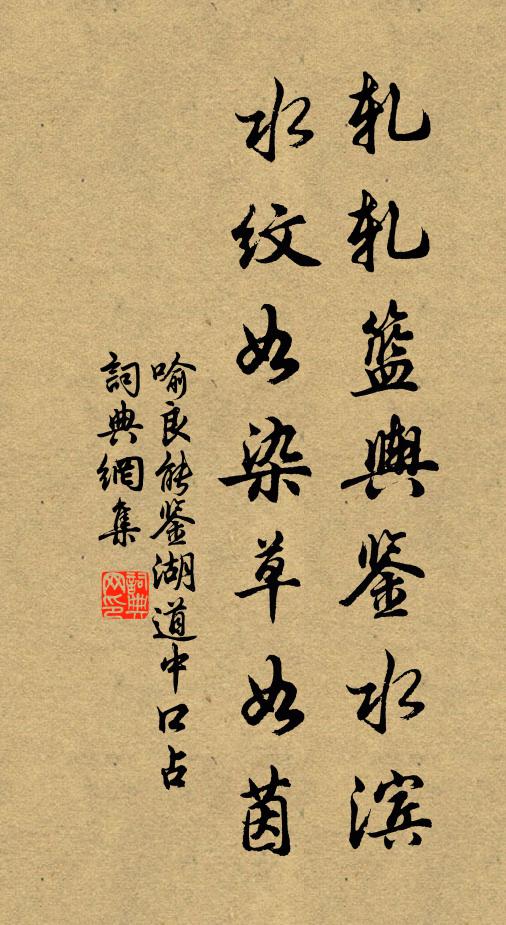 轧轧篮舆鉴水滨
水纹如染草如茵
喻良能鉴湖道中口占
詞典網集
詞典网印